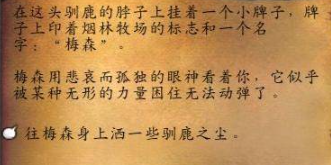 在这头驯鹿的脖子上挂着一个小牌子，牌
子上印着烟林牧场的标志和一个名
字：“梅森”。
梅森用悲哀而孤独的眼神看着你，它似乎
被某种无形的力量困住无法动弹了。
往梅森身上洒一些驯鹿之尘。